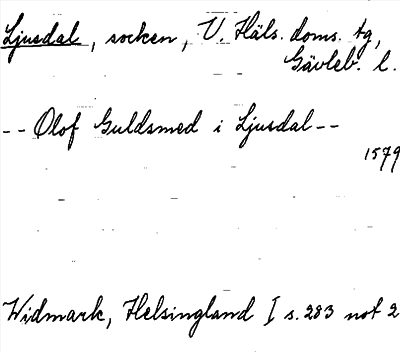 Ljusdal, socken, V. Häls. doms. tg,
Gävleb. l.
-- Olof Guldsmed i Ljusdal --
1579
Widmark, Helsingland I s. 283 not 2